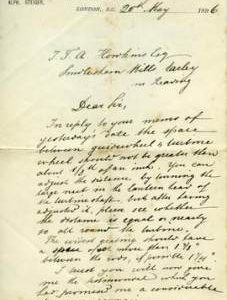 ALPH. STEIGER.
LONDON, S.E. 20th May 1896
T. F. A. Howkins Esq
Mills Earley
nr Reading
Dear Sir,
In reply to your memo of
yesterday's date the space
between guidewheel & turbine
wheel should not be greater than
about 1/8th of an inch. You can
adjust the distance, by turning the
large nut in the lantern head of
the turbine shaft. but after having
adjusted it, please see whether
the distance is equal or nearly
so all round the turbine.
The wicket gearing should have
a space of not more than 1 1/8"
between the rods, if possible
I trust you will now give
me the testimonial which you
had promised me a considerable